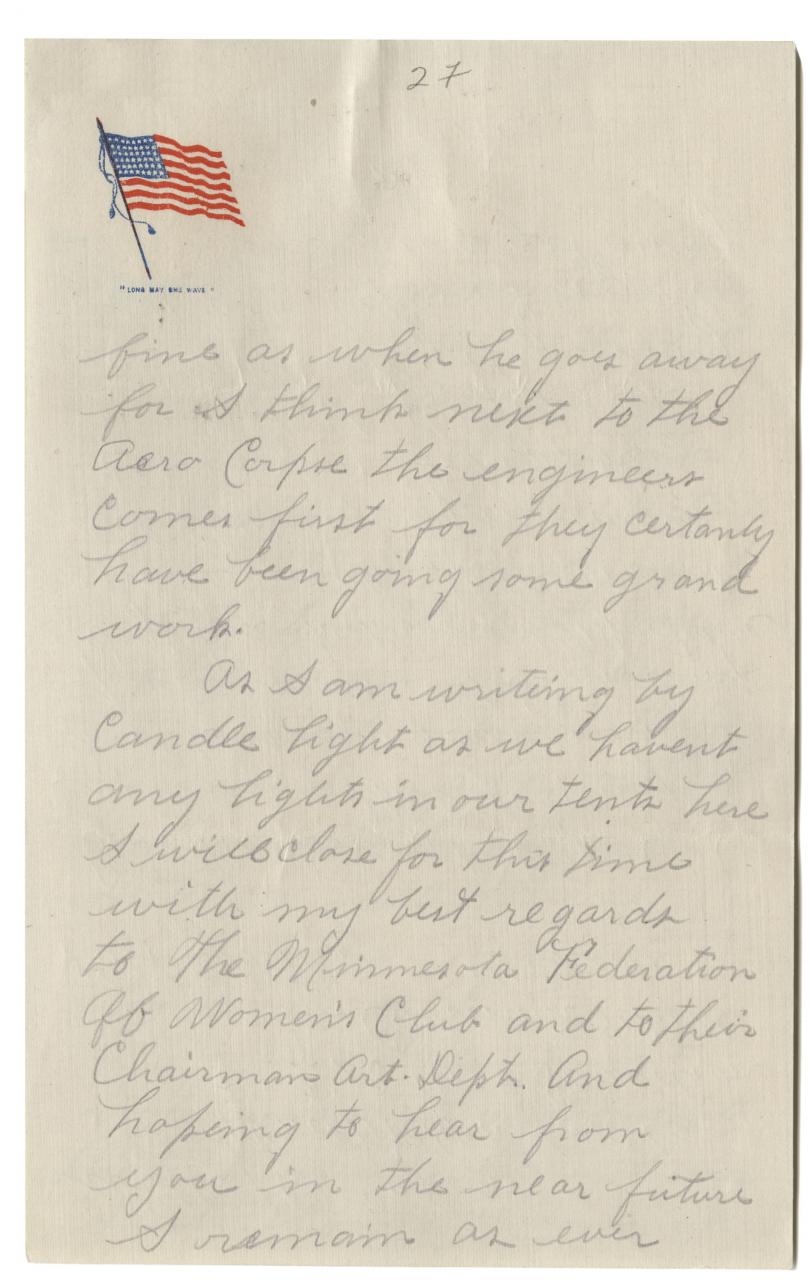 27
"LONG MAY SHE WAVE"
fine as when he goes away
for I think next to the
Aero Corpse the engineers
comes first for they certanly
have been going some grand
work.
As I am writing by
Candle light as we havent
any lights in our tents here
I will close for this time
with my best regards
to The Minnesota Federation
Of Women's Club and to their
Chairman Art. Dept. And
hopeing to hear from
you in the near future
I remain as ever